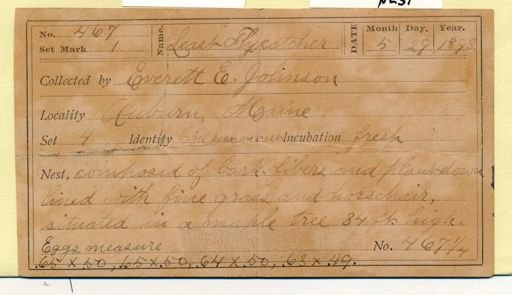 No. 467 Name. Least Flycatcher DATE Month Day. Year.
Set Mark 1 5 29 1893
Collected by Everett E. Johnson
Locality Auburn, Maine
Set 4 Identity bird seen on nest Incubation fresh
Nest, composed of bark fibers and plant down
lined with fine grass and horsehair,
situated in a maple tree 34 ft. high.
Eggs measure No. 467 1/4
65 x 50, 65 x 50, 64 x 50, 63 x 49.